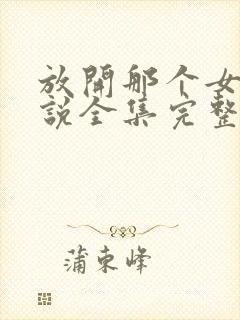 放開那个女
説全集完整
蒲東峰